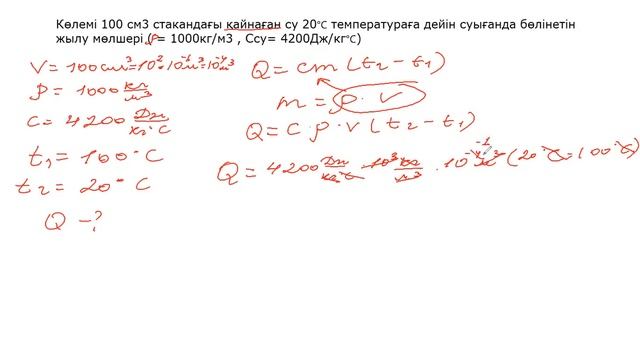 Көлемі 100 см3 стакандағы қайнаған су 20°С температураға дейін суығанда бөлінетін
жылу мөлшері ( ρ = 1000кг/м3 , Ссу= 4200Дж/кг°С)
V = 100см³ = 10² · 10⁻⁶м³ = 10⁻⁴м³
ρ = 1000 кг/м³
c = 4200 Дж/кг·°C
t₁ = 100°C
t₂ = 20°C
Q - ?
Q = cm (t₂ - t₁)
m = ρ · V
Q = c · ρ · V (t₂ - t₁)
Q = 4200 Дж/кг·°C · 10³ кг/м³ · 10⁻⁴ м³ (20°C - 100°C)
-1